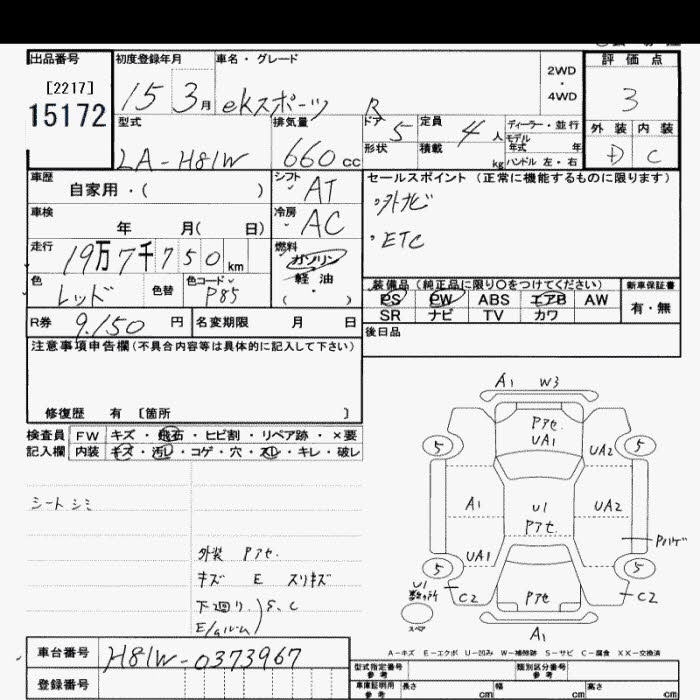 出品番号 初度登録年月 車名・グレード 評価点
[2217] 15 3月 ekスポーツ R 2WD・4WD 3
15172
型式 排気量 ドア 5 定員 4人 ディーラー・並行 外装 内装
LA-H81W 660cc 形状 積載 kg モデル年式 年 D C
ハンドル 左・右
車歴 自家用・( ) シフト AT セールスポイント (正常に機能するものに限ります)
車検 年 月( 日) 冷房 AC ・外ナビ
走行 19万7千750km 燃料 ガソリン ・ETC
軽油
色 レッド 色替 色コード P85 ・( ) 装備品 (純正品に限り○をつけてください) 新車保証書
PS PW ABS エアB AW 有・無
SR ナビ TV カワ
R券 9,150円 名変期限 月 日 後日品
注意事項申告欄(不具合内容等は具体的に記入して下さい)
修復歴 有 [箇所 ]
検査員 FW キズ・飛石・ヒビ割・リペア跡・×要
記入欄 内装 キズ・汚レ・コゲ・穴・スレ・キレ・破レ
シートシミ
外装 Pアセ.
キズ E スリキズ
下回り.)S、C
A1 W3
Pアセ.
UA1
5 UA2 5
A1 U1 UA2
Pアセ
Pハゲ
UA1
5 5
U1
C2 Pアセ C2
スペア
A1
A-キズ E-エクボ U-凹み W-補修跡 S-サビ C-腐食 XX-交換済
車台番号 H81W-0373967
登録番号
型式指定番号 参考 類別区分番号 参考
車庫証明用 参考 長さ cm 幅 cm 高さ cm